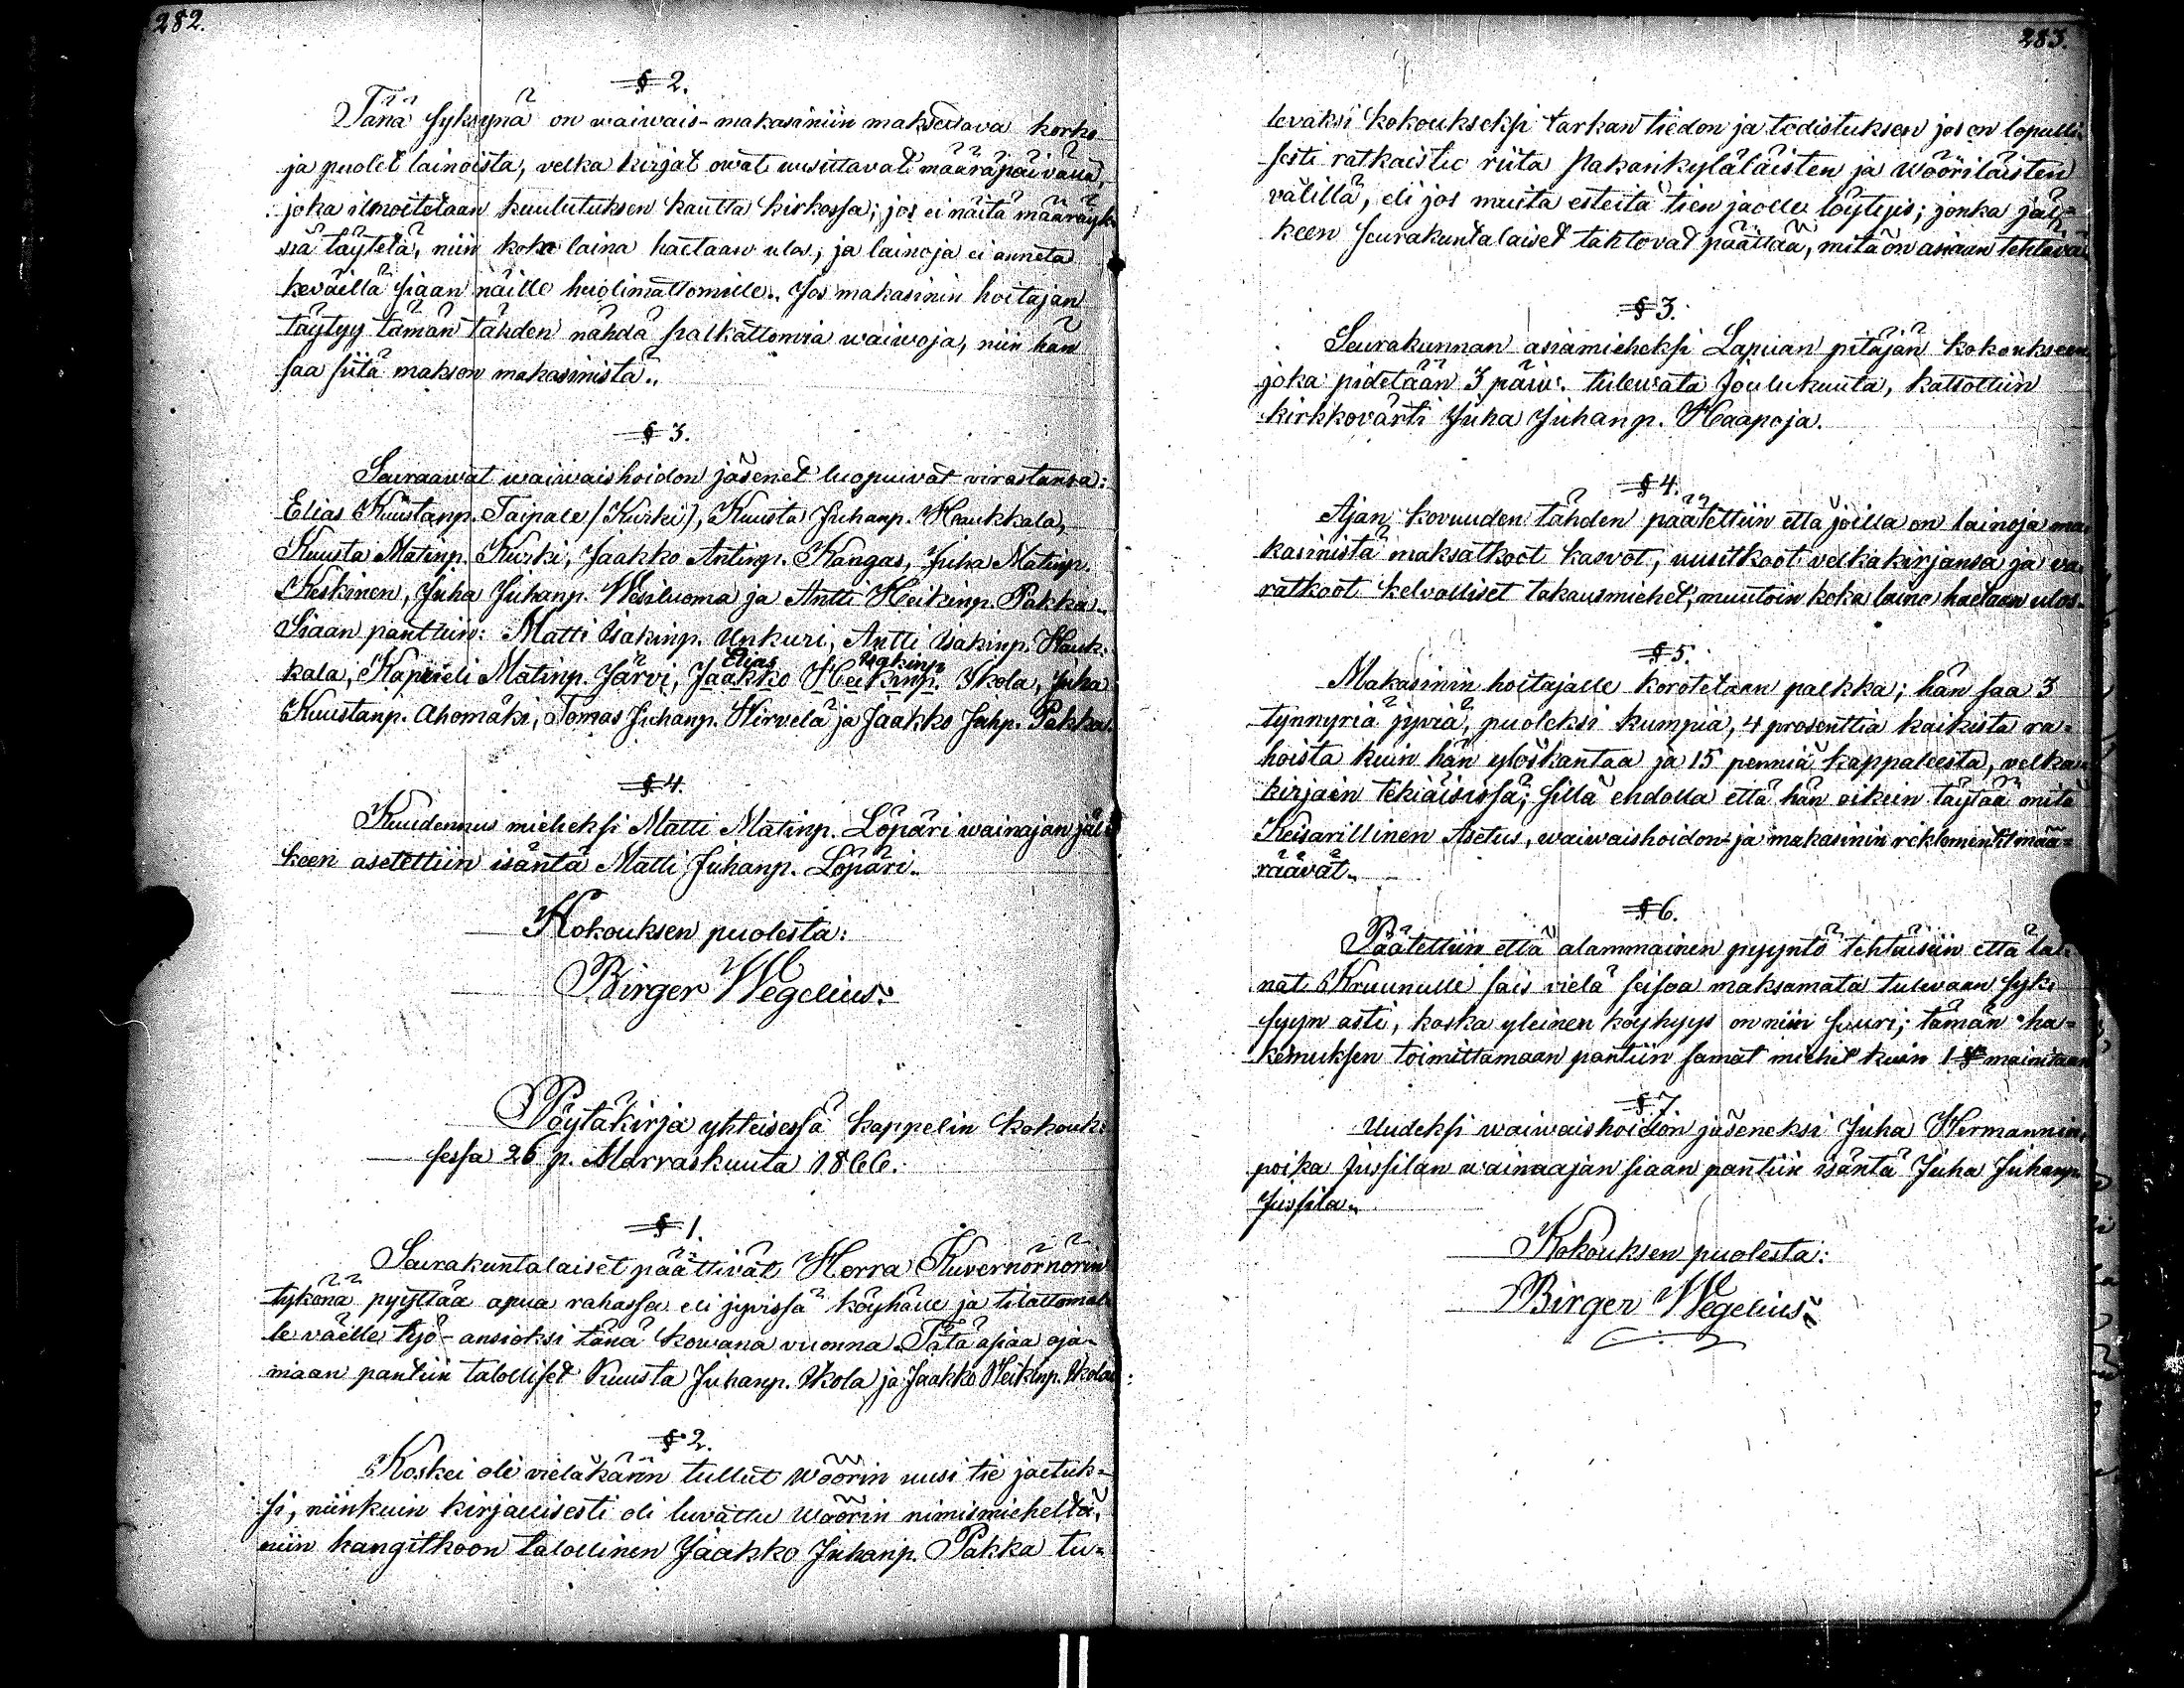 282.
§ 2.
Tänä syksynä on waiwais-makasiniin maksettava korko
ja puolet lainoista, velka kirjat owat uusittavat määräpäivänä,
joka ilmoitetaan kuulutuksen kautta kirkossa; jos ei näitä määräyk-
siä täytetä, niin koko laina haetaan ulos; ja lainoja ei anneta
keväillä siaan näille huolimattomille. Jos makasinin hoitajan
täytyy tämän tähden nähdä palkattomia waiwoja, niin hän
saa siitä makson makasinista.
§ 3.
Seuraawat waiwaishoidon jäsenet luopuivat virastansa:
Elias Kuustanp. Taipale /Kurki/, Kuusta Juhanp. Haukkala,
Kuusta Matinp. Kurki, Jaakko Antinp. Kangas, Juha Matinp.
Keskinen, Juha Juhanp. Wesiluoma ja Antti Heikinp. Pakka.
Siaan pantiin: Matti Isakinp. Unkuri, Antti Isakinp. Hauk-
kala, Kaprieli Matinp. Järvi, Jaakko Heikinp. Ikola, Juha
Elias Isakinp
Kuustanp. Ahomäki, Tomas Juhanp. Hirvelä ja Jaakko Juhp. Pakka.
§ 4.
Kuudennus mieheksi Matti Matinp. Löpäri wainajan jäl-
keen asetettiin isäntä Matti Juhanp. Löpäri.
Kokouksen puolesta:
Birger Wegelius.
Pöytäkirja yhteisessä kappelin kokouk-
sessa 26 p. Marraskuuta 1866.
§ 1.
Seurakuntalaiset päättivät Herra Kuvernörnörin
tykönä pyyttää apua rahassa eli jyvissä köyhälle ja tilattomal-
le väelle työ-ansioksi tänä kowana vuonna. Tätä asiaa aja-
maan pantiin talolliset Kuusta Juhanp. Ikola ja Jaakko Heikinp. Ikola:
§ 2.
Koskei oli vieläkään tullut Wöörin uusi tie jaetuk-
si, niinkuin kirjallisesti oli luvattu Wöörin nimismieheltä,
niin hangitkoon talollinen Jaakko Juhanp. Pakka tu-
283.
levaksi kokoukseksi tarkan tiedon ja todistuksen jos on lopulli-
sesti ratkaistu riita Pakankyläläisten ja Wööriläisten
välillä, eli jos muita esteitä tien jaolle löytyis; jonka jäl-
keen seurakuntalaiset tahtovat päättää, mitä on asiaan tehtävä
§ 3.
Seurakunnan asiamieheksi Lapuan pitäjän kokoukseen,
joka pidetään 3 päiv. tulewata Joulukuuta, katsottiin
kirkkovärti Juha Juhanp. Haapoja.
§ 4.
Ajan kovuuden tähden päätettiin että joilla on lainoja ma-
kasinista maksatkoot kasvot, uusitkoot velkakirjansa ja va-
ratkoot kelvolliset takausmiehet, muutoin koka laina haetaan ulos.
§ 5.
Makasinin hoitajalle korotetaan palkka; hän saa 3
tynnyriä jyviä, puoleksi kumpia, 4 prosenttia kaikista ra-
hoista kuin hän ylöskantaa ja 15 penniä kappaleesta, velka-
kirjain tekiäisissä; sillä ehdolla että hän oikein täytää mitä
Keisarillinen Asetus, waiwaishoidon- ja makasinin reklementit mää-
räävät.
§ 6.
Päätettiin että alammainen pyyntö tehtäisiin että lai-
nat Kruunulle sais vielä seisoa maksamata tulewaan syk-
syyn asti, koska yleinen köyhyys on niin suuri; tämän ha-
kemuksen toimittamaan pantiin samat miehet kuin 1 § mainitaan
§ 7
Uudeksi waiwaishoidon jäseneksi Juha Hermannin-
poika Jussilan wainaajan siaan pantiin isäntä Juha Juhanp.
Jussila.
Kokouksen puolesta:
Birger Wegelius.